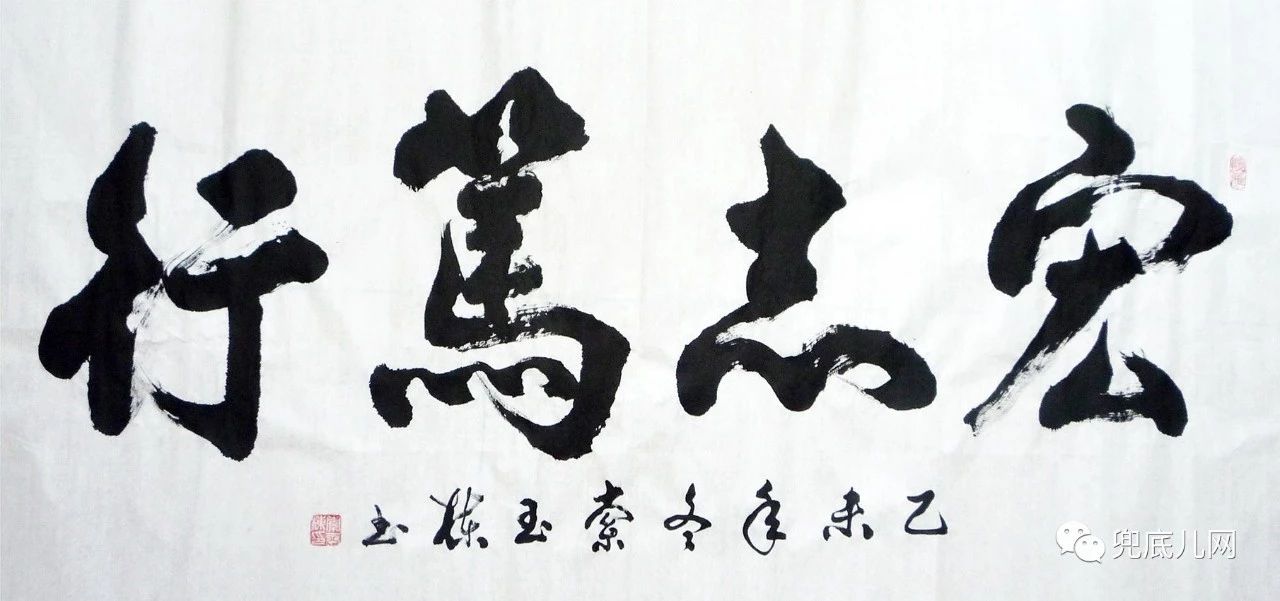 宏志篤行
乙未年冬索玉栋书
兜底儿网